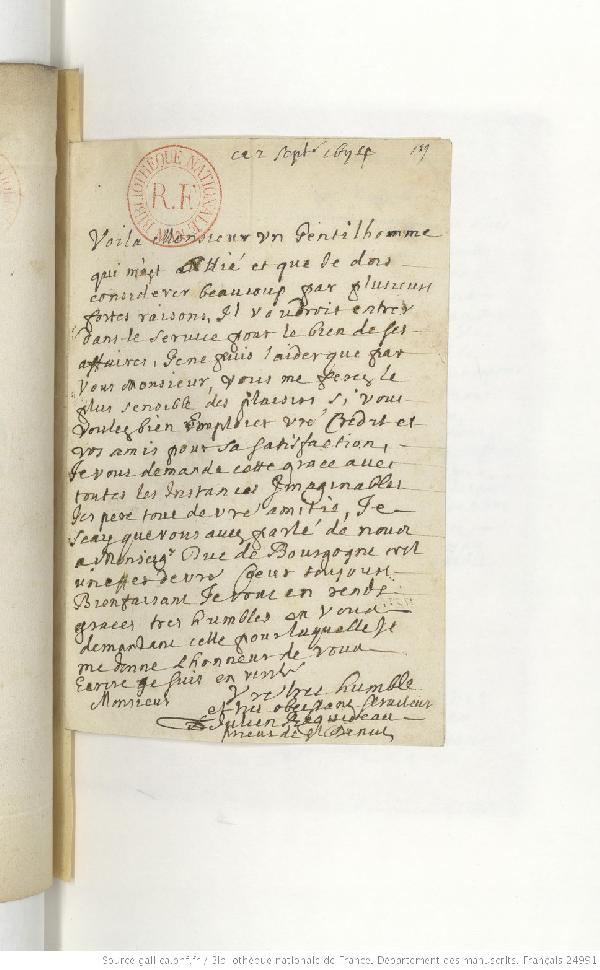 ce 2 sept.
BIBLIOTHÈQUE NATIONALE
R.F.
MANUSCRITS
Voila Monsieur un Gentilhomme
qui m'est allié et que Je dois
considerer beaucoup par plusieurs
fortes raisons, Il voudroit entrer
dans le service pour le bien de ses
affaires, Je ne puis l'aider que par
vous Monsieur, vous me ferez le
plus sensible des plaisirs si vous
voulez bien Employer vre Credit et
vos amis pour sa satisfaction,
Je vous demande cette grace avec
toutes les Instances Imaginables
J'espere tout de vre amitié, Je
scay que vous avez parlé de nous
a Monseigr Duc de Bourgogne c'est
un effet de vre Coeur toujours
Bienfaisant Je vous en rends
graces tres humbles en vous
demandant celle pour laquelle Je
me donne l'honneur de vous
Ecrire Je suis en
Monsieur
Vre tres humble
et tres obeissant serviteur
Julien
prieur de St Denis
Source gallica.bnf.fr / Bibliothèque nationale de France. Département des manuscrits. Français 24991